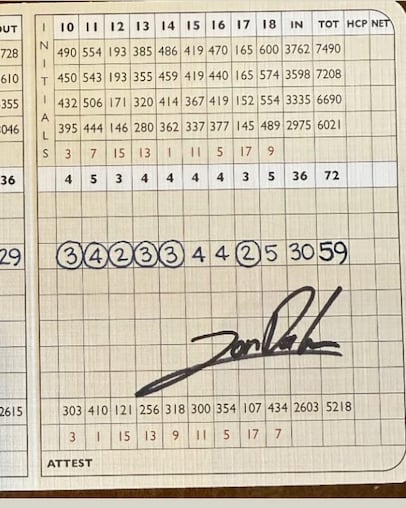 OUT INITIALS 10 11 12 13 14 15 16 17 18 IN TOT HCP NET
728 490 554 193 385 486 419 470 165 600 3762 7490
610 450 543 193 355 459 419 440 165 574 3598 7208
355 432 506 171 320 414 367 419 152 554 3335 6690
046 395 444 146 280 362 337 377 145 489 2975 6021
3 7 15 13 1 11 5 17 9
36 4 5 3 4 4 4 4 3 5 36 72
29 3 4 2 3 3 4 4 2 5 30 59
2615 303 410 121 256 318 300 354 107 434 2603 5218
3 1 15 13 9 11 5 17 7
ATTEST